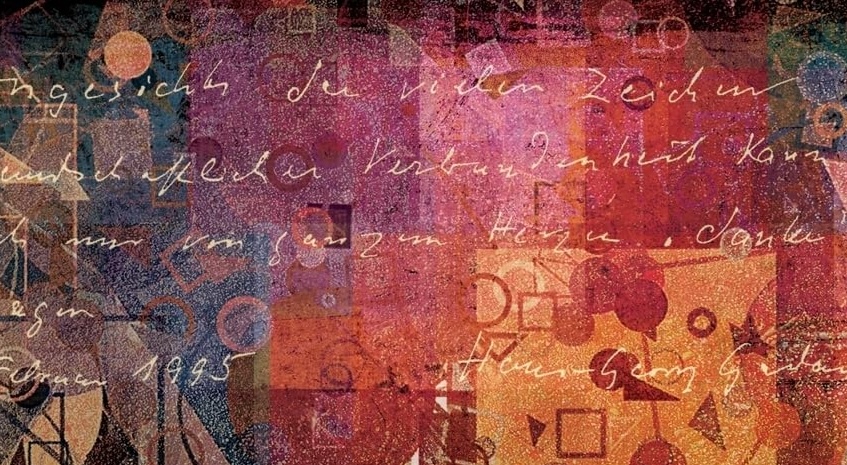 ngesichts der vielen Zeichen
eundschaftlicher Verbundenheit kann
ch nur von ganzem Herzen "danke"
agen
Februar 1995 Hans-Georg Gadam